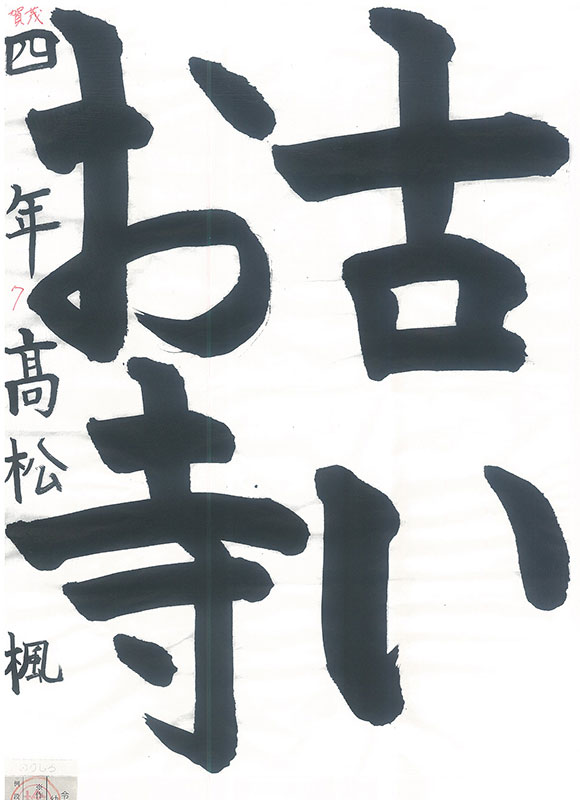 古い
お寺
四年 髙松 楓
賀茂
7